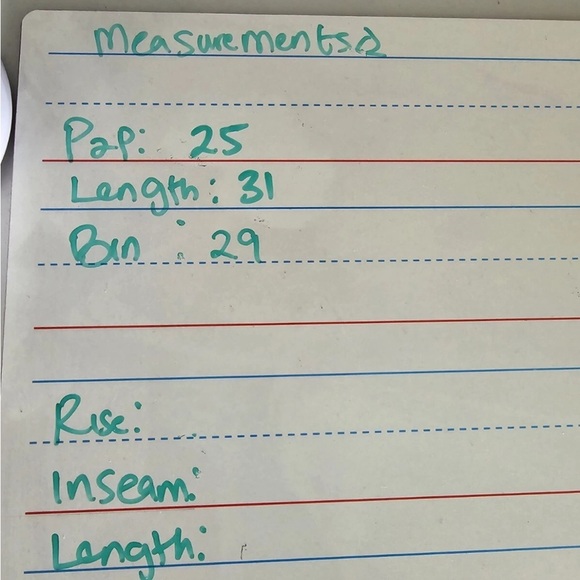 Measurements
P2P: 25
Length: 31
Bin : 29
Rise:
Inseam:
Length: